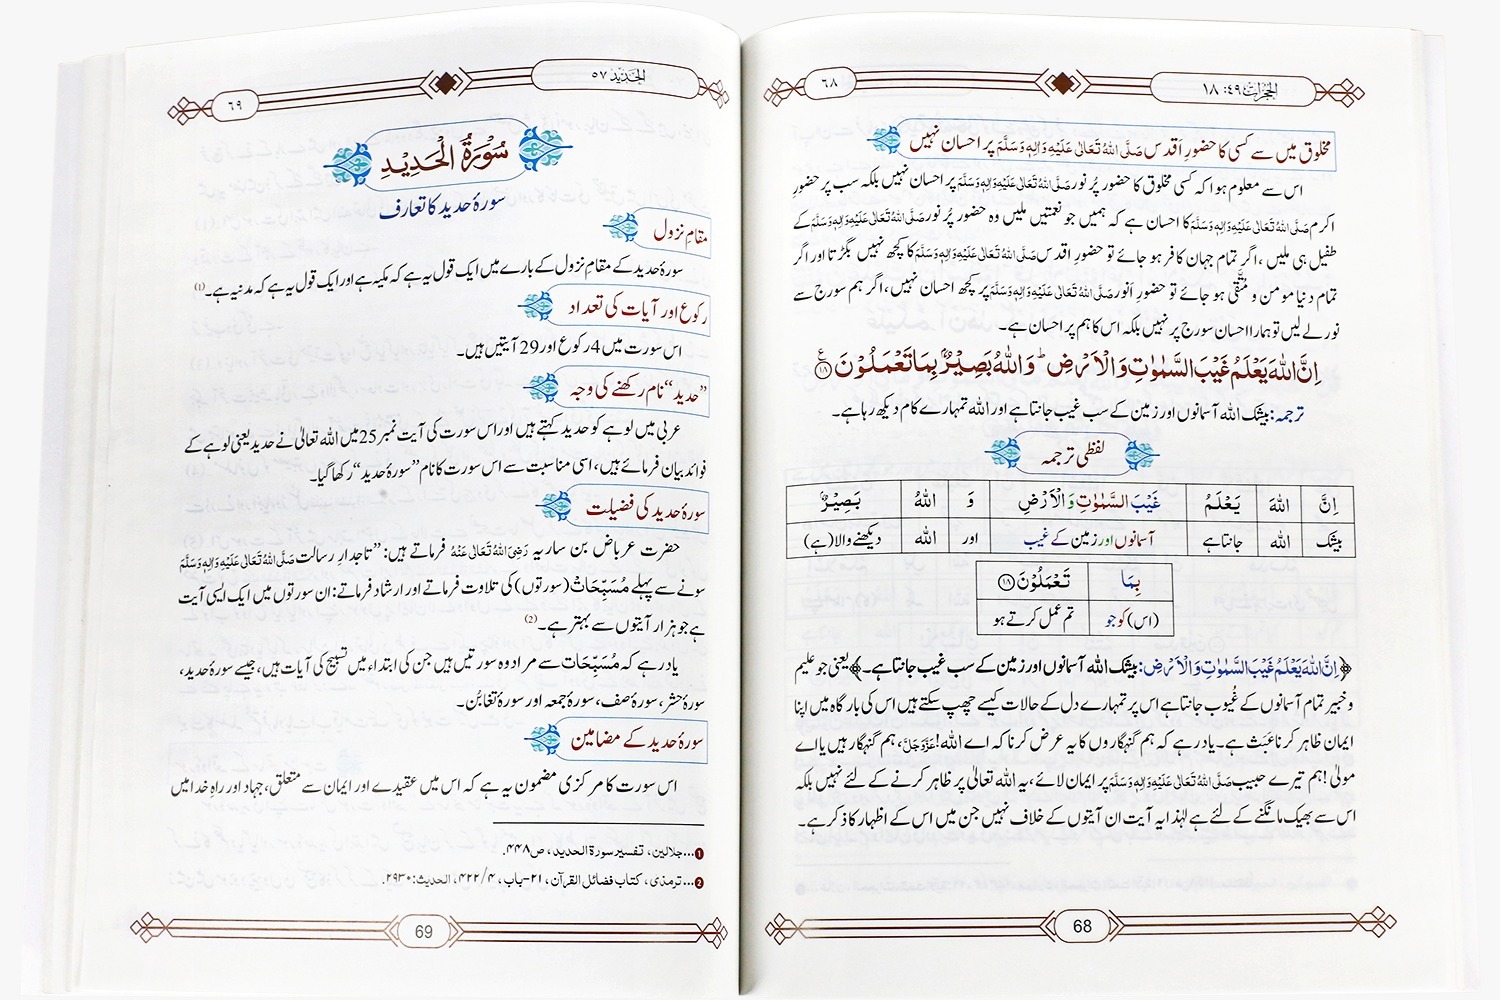 الحجرات ٤٩: ١٨
٦٨
مخلوق میں سے کسی کا حضورِ اَقدس صَلَّی اللہُ تَعَالٰی عَلَیْہِ وَاٰلِہٖ وَسَلَّمَ پر احسان نہیں
اس سے معلوم ہوا کہ کسی مخلوق کا حضور پُر نور صَلَّی اللہُ تَعَالٰی عَلَیْہِ وَاٰلِہٖ وَسَلَّمَ پر احسان نہیں بلکہ سب پر حضورِ
اکرم صَلَّی اللہُ تَعَالٰی عَلَیْہِ وَاٰلِہٖ وَسَلَّمَ کا احسان ہے کہ ہمیں جو نعمتیں ملیں وہ حضور پُر نور صَلَّی اللہُ تَعَالٰی عَلَیْہِ وَاٰلِہٖ وَسَلَّمَ کے
طفیل ہی ملیں، اگر تمام جہان کافر ہو جائے تو حضورِ اقدس صَلَّی اللہُ تَعَالٰی عَلَیْہِ وَاٰلِہٖ وَسَلَّمَ کا کچھ نہیں بگڑتا اور اگر
تمام دنیا مومن و مُتَّقی ہو جائے تو حضورِ انور صَلَّی اللہُ تَعَالٰی عَلَیْہِ وَاٰلِہٖ وَسَلَّمَ پر کچھ احسان نہیں، اگر ہم سورج سے
نور لے لیں تو ہمارا احسان سورج پر نہیں بلکہ اس کا ہم پر احسان ہے۔
اِنَّ اللّٰهَ یَعْلَمُ غَیْبَ السَّمٰوٰتِ وَ الْاَرْضِؕ-وَ اللّٰهُ بَصِیْرٌۢ بِمَا تَعْمَلُوْنَ۠(۱۸)
ترجمہ: بیشک اللہ آسمانوں اور زمین کے سب غیب جانتا ہے اور اللہ تمہارے کام دیکھ رہا ہے۔
لفظی ترجمہ
اِنَّ اللّٰهَ یَعْلَمُ غَیْبَ السَّمٰوٰتِ وَ الْاَرْضِ وَ اللّٰهُ بَصِیْرٌۢ
بیشک اللہ جانتا ہے آسمانوں اور زمین کے غیب اور اللہ دیکھنے والا (ہے)
بِمَا تَعْمَلُوْنَ(۱۸)
(اس) کو جو تم عمل کرتے ہو
﴿اِنَّ اللّٰهَ یَعْلَمُ غَیْبَ السَّمٰوٰتِ وَ الْاَرْضِ: بیشک اللہ آسمانوں اور زمین کے سب غیب جانتا ہے۔﴾ یعنی جو علیم
و خبیر تمام آسمانوں کے غُیوب جانتا ہے اس پر تمہارے دل کے حالات کیسے چھپ سکتے ہیں اس کی بارگاہ میں اپنا
ایمان ظاہر کرنا عَبَث ہے۔ یاد رہے کہ ہم گنہگاروں کا یہ عرض کرنا کہ اے اللہ! عَزَّوَجَلَّ، ہم گنہگار ہیں یا اے
مولیٰ! ہم تیرے حبیب صَلَّی اللہُ تَعَالٰی عَلَیْہِ وَاٰلِہٖ وَسَلَّمَ پر ایمان لائے، یہ اللہ تعالیٰ پر ظاہر کرنے کے لئے نہیں بلکہ
اس سے بھیک مانگنے کے لئے ہے لہٰذا یہ آیت ان آیتوں کے خلاف نہیں جن میں اس کے اظہار کا ذکر ہے۔
68
الحديد ٥٧
٦٩
سُوْرَةُ الْحَدِيْدِ
سورۂ حدید کا تعارف
مقامِ نزول
سورۂ حدید کے مقامِ نزول کے بارے میں ایک قول یہ ہے کہ مکیہ ہے اور ایک قول یہ ہے کہ مدنیہ ہے۔(1)
رکوع اور آیات کی تعداد
اس سورت میں 4 رکوع اور 29 آیتیں ہیں۔
”حدید“ نام رکھنے کی وجہ
عربی میں لوہے کو حدید کہتے ہیں اور اس سورت کی آیت نمبر 25 میں اللہ تعالیٰ نے حدید یعنی لوہے کے
فوائد بیان فرمائے ہیں، اسی مناسبت سے اس سورت کا نام ”سورۂ حدید“ رکھا گیا۔
سورۂ حدید کی فضیلت
حضرت عرباض بن ساریہ رَضِیَ اللہُ تَعَالٰی عَنْہُ فرماتے ہیں: ”تاجدارِ رسالت صَلَّی اللہُ تَعَالٰی عَلَیْہِ وَاٰلِہٖ وَسَلَّمَ
سونے سے پہلے مُسَبِّحَاتْ (سورتوں) کی تلاوت فرماتے اور ارشاد فرماتے: ان سورتوں میں ایک ایسی آیت
ہے جو ہزار آیتوں سے بہتر ہے۔(2)
یاد رہے کہ مُسَبِّحَات سے مراد وہ سورتیں ہیں جن کی ابتداء میں تسبیح کی آیات ہیں، جیسے سورۂ حدید،
سورۂ حشر، سورۂ صف، سورۂ جمعہ اور سورۂ تَغابُن۔
سورۂ حدید کے مضامین
اس سورت کا مرکزی مضمون یہ ہے کہ اس میں عقیدے اور ایمان سے متعلق، جہاد اور راہِ خدا میں
1...جلالین، تفسیر سورة الحدید، ص٤٤٨.
2...ترمذی، کتاب فضائل القرآن، ٢١-باب، ٤٢٢/٤، الحدیث: ٢٩٣٠.
69